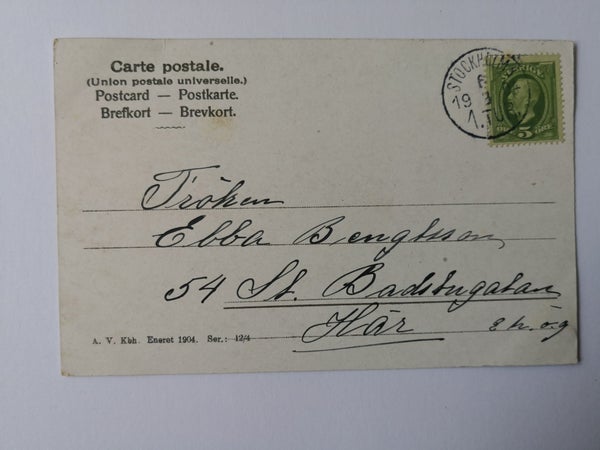 Carte postale.
(Union postale universelle.)
Postcard — Postkarte.
Brefkort — Brevkort.
STOCKHOLM
19
1. TUR
SVERIGE
5 ÖRE
Fröken
Ebba Bengtsson
54 St. Badstugatan
Här
2 tr. ö. g
A. V. Kbh. Eneret 1904. Ser.: 12/4